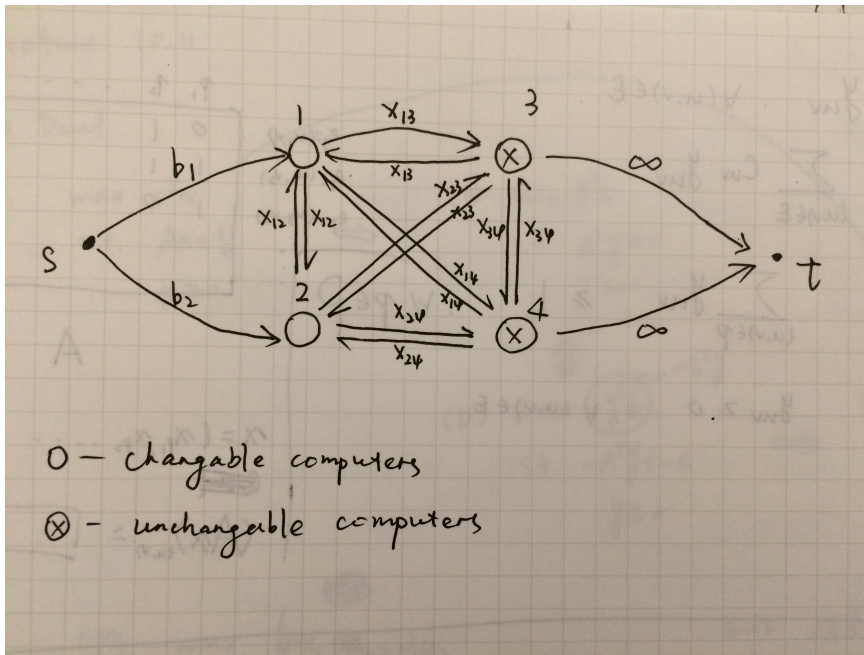 1
3
x13
x13
b1
∞
x23
x23
x12
x12
x34
x34
S
t
x14
x14
2
b2
4
x24
x24
∞
O — changable computers
ⓧ - unchangable computers